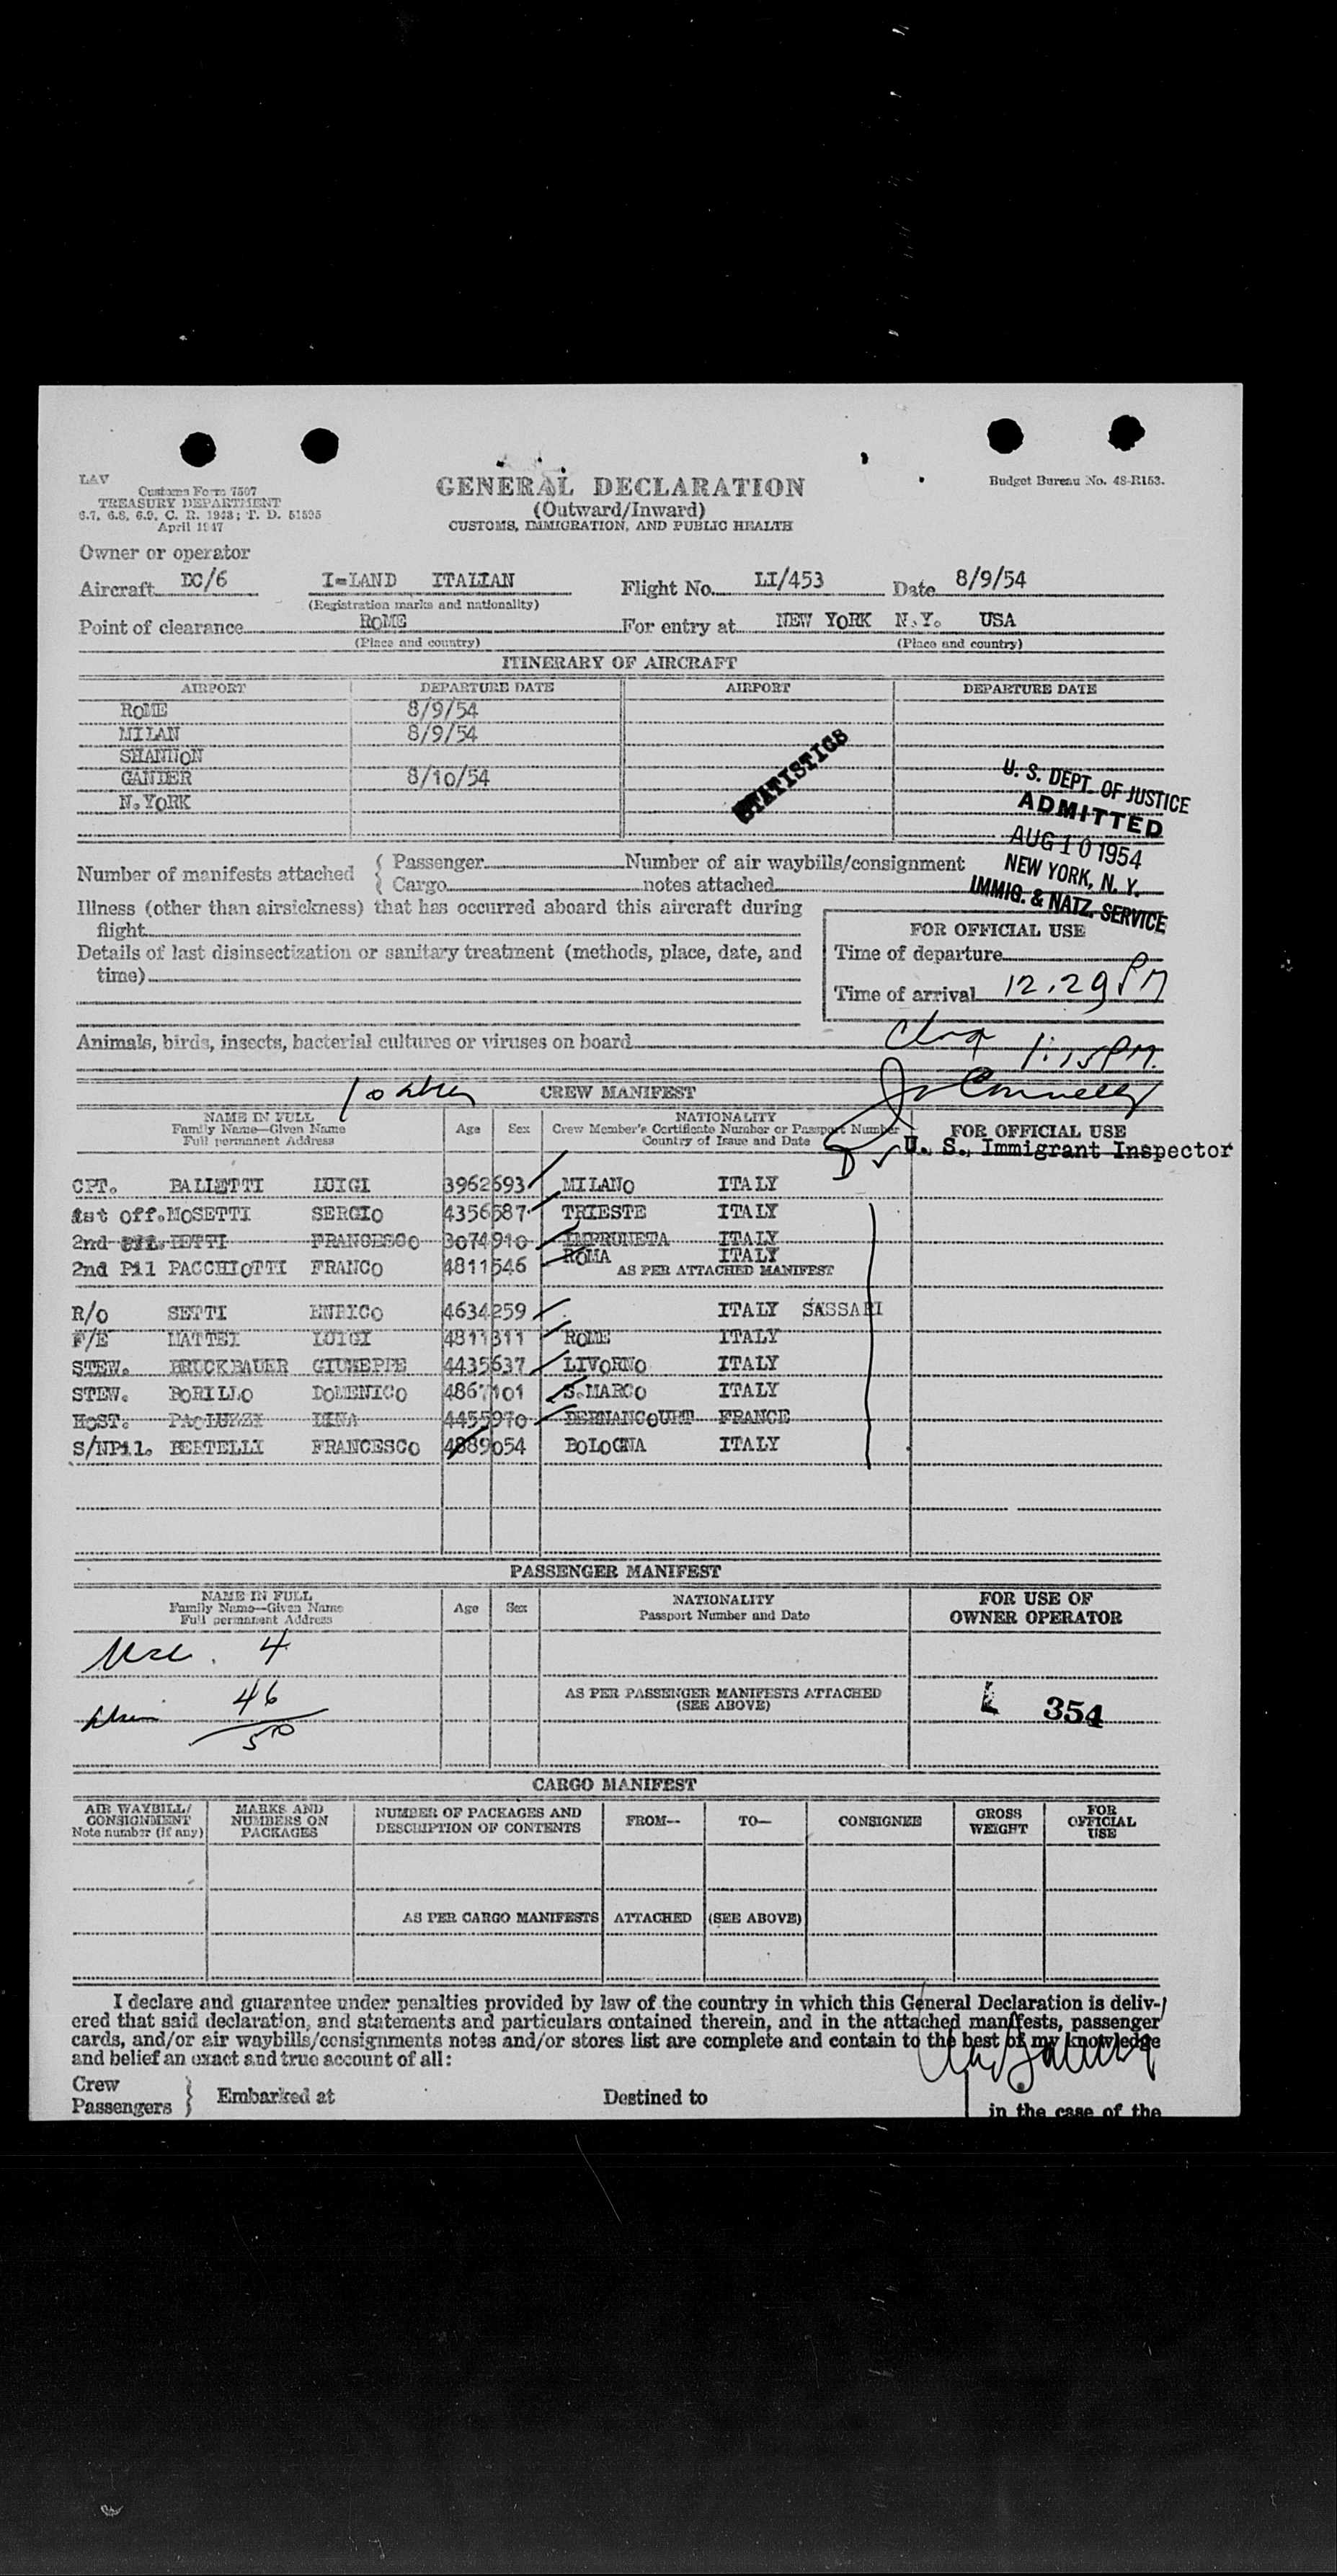 LAV
Customs Form 7507
TREASURY DEPARTMENT
6.7, 6.8, 6.9, C. R. 1943; T. D. 51595
April 1947
GENERAL DECLARATION
(Outward/Inward)
CUSTOMS, IMMIGRATION, AND PUBLIC HEALTH
Budget Bureau No. 48-R153.
Owner or operator
Aircraft DC/6 I=LAND ITALIAN Flight No. LI/453 Date 8/9/54
(Registration marks and nationality)
Point of clearance ROME For entry at NEW YORK N.Y. USA
(Place and country) (Place and country)
ITINERARY OF AIRCRAFT
AIRPORT DEPARTURE DATE AIRPORT DEPARTURE DATE
ROME 8/9/54
MILAN 8/9/54
SHANNON
GANDER 8/10/54
N.YORK
STATISTICS
U. S. DEPT. OF JUSTICE
ADMITTED
AUG 10 1954
NEW YORK, N. Y.
IMMIG. & NATZ. SERVICE
Number of manifests attached { Passenger Number of air waybills/consignment
{ Cargo notes attached
Illness (other than airsickness) that has occurred aboard this aircraft during
flight
Details of last disinsectization or sanitary treatment (methods, place, date, and
time)
FOR OFFICIAL USE
Time of departure
Time of arrival 12.29 PM
Animals, birds, insects, bacterial cultures or viruses on board
1:15 PM.
CREW MANIFEST
10
NAME IN FULL
Family Name—Given Name
Full permanent Address
Age Sex
NATIONALITY
Crew Member's Certificate Number or Passport Number
Country of Issue and Date
FOR OFFICIAL USE
U. S. Immigrant Inspector
CPT. BALLETTI LUIGI 3962693 MILANO ITALY
1st off. MOSETTI SERGIO 4356587 TRIESTE ITALY
2nd IETTI FRANCESCO 3074910 IMPRUNETA ITALY
2nd Pil PACCHIOTTI FRANCO 4811546 ROMA ITALY
AS PER ATTACHED MANIFEST
R/O SETTI ENRICO 4634259 ITALY SASSARI
F/E MATTEI LUIGI 4811311 ROME ITALY
STEW. BRUCKBAUER GIUSEPPE 4435637 LIVORNO ITALY
STEW. BORILLO DOMENICO 4867101 S.MARCO ITALY
HOST. PAOLUZZI LINA 4455970 BERNANCOURT FRANCE
S/NPil. BERTELLI FRANCESCO 4889054 BOLOGNA ITALY
PASSENGER MANIFEST
NAME IN FULL
Family Name—Given Name
Full permanent Address
Age Sex
NATIONALITY
Passport Number and Date
FOR USE OF
OWNER OPERATOR
4
46
50
AS PER PASSENGER MANIFESTS ATTACHED
(SEE ABOVE)
L 354
CARGO MANIFEST
AIR WAYBILL/
CONSIGNMENT
Note number (if any)
MARKS AND
NUMBERS ON
PACKAGES
NUMBER OF PACKAGES AND
DESCRIPTION OF CONTENTS
FROM--
TO—
CONSIGNEE
GROSS
WEIGHT
FOR
OFFICIAL
USE
AS PER CARGO MANIFESTS ATTACHED (SEE ABOVE)
I declare and guarantee under penalties provided by law of the country in which this General Declaration is deliv-
ered that said declaration, and statements and particulars contained therein, and in the attached manifests, passenger
cards, and/or air waybills/consignments notes and/or stores list are complete and contain to the best of my knowledge
and belief an exact and true account of all:
Crew
Passengers } Embarked at Destined to
in the case of the